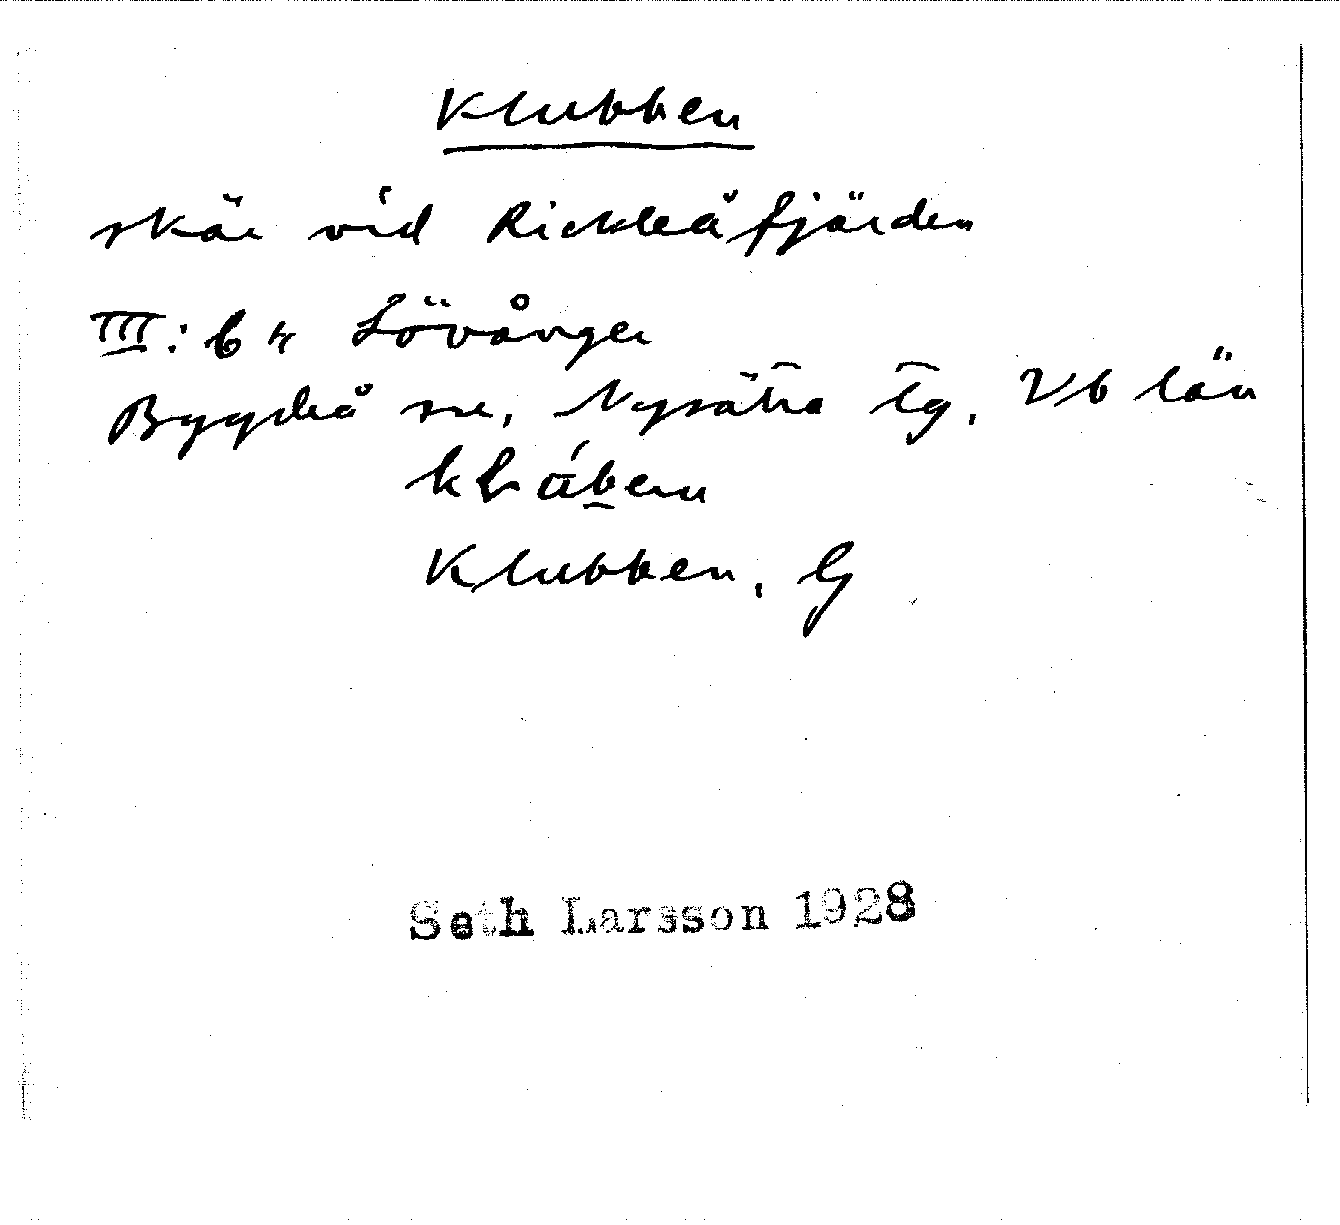 Klubben
skär vid Rickleåfjärden
III: 6 h Lövånger
Bygdeå sn, Nysätra tg, Vb län
Klubben, G
Seth Larsson 1928